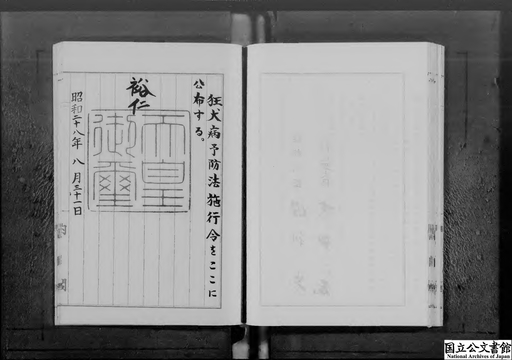 狂犬病予防法施行令をここに
公布する。
裕仁
天皇
御璽
昭和二十八年八月三十一日
国立公文書館
National Archives of Japan